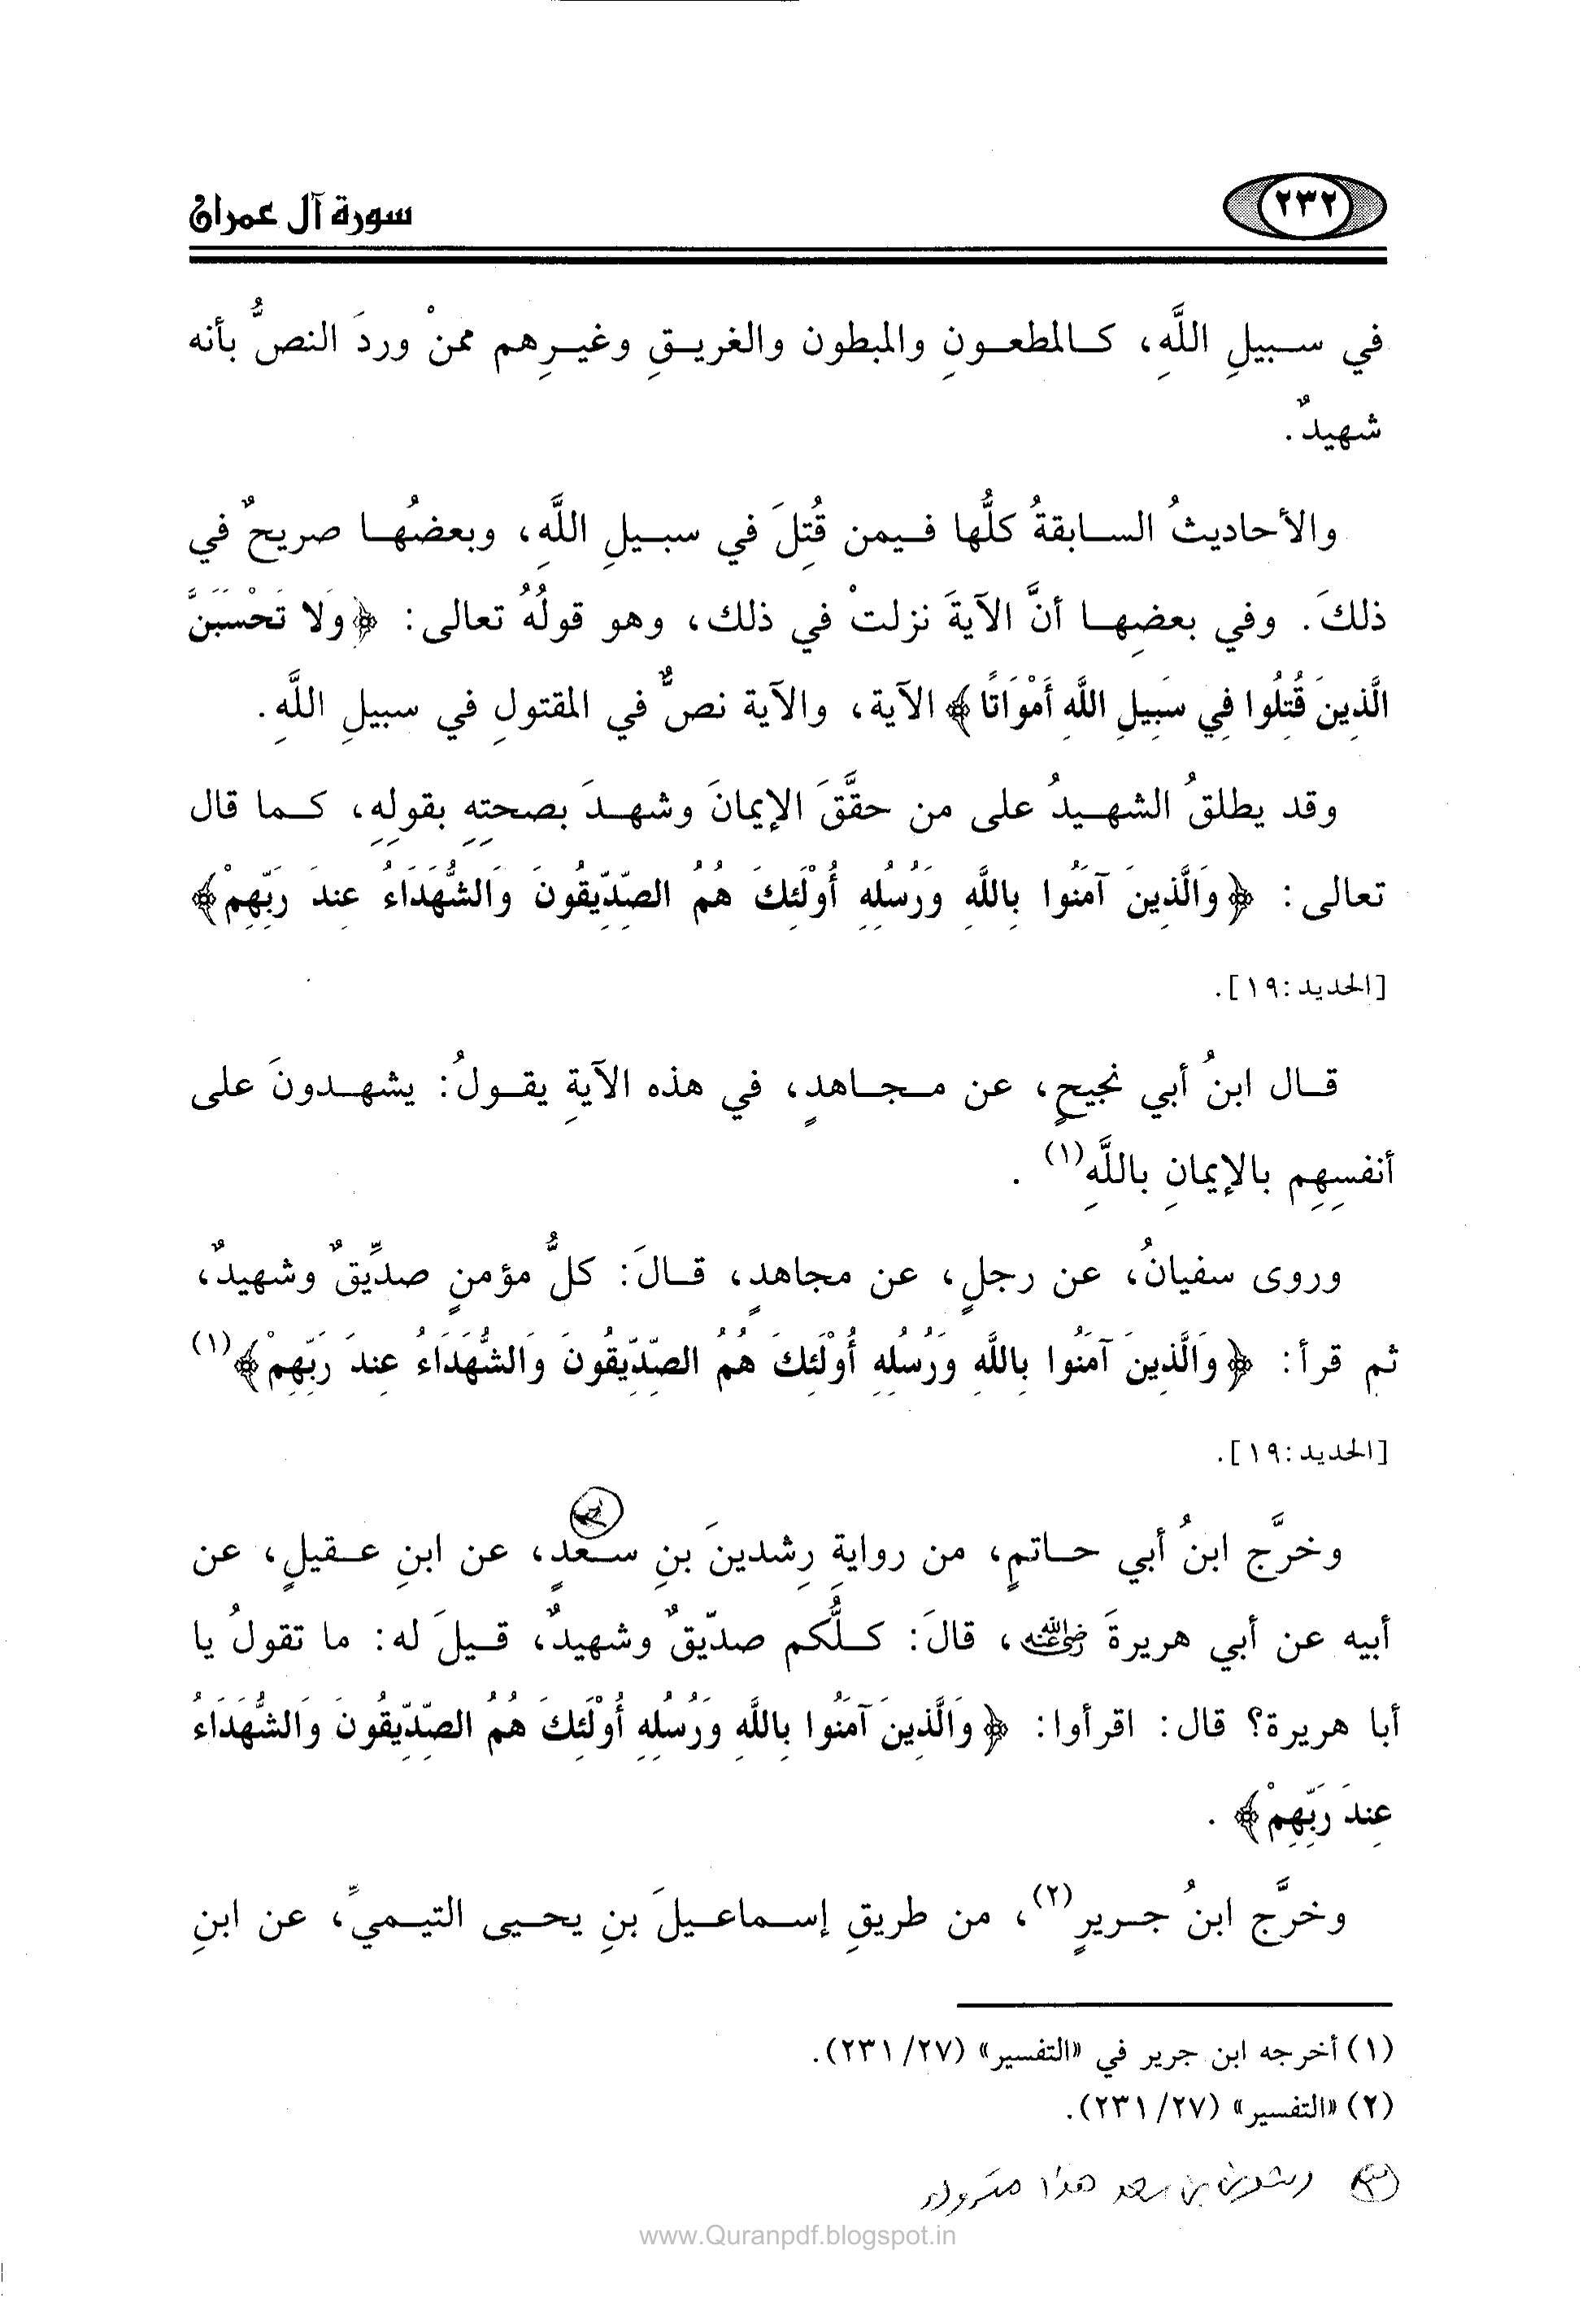 ٢٣٢
سورة آل عمران
في سبيلِ اللَّهِ، كالمطعونِ والمبطون والغريقِ وغيرِهم ممنْ وردَ النصُّ بأنه
شهيدٌ.
والأحاديثُ السابقةُ كلُّها فيمن قُتِلَ في سبيلِ اللَّهِ، وبعضُها صريحٌ في
ذلكَ. وفي بعضِها أنَّ الآيةَ نزلتْ في ذلك، وهو قولُهُ تعالى: ﴿وَلا تَحْسَبَنَّ
الَّذِينَ قُتِلُوا فِي سَبِيلِ اللَّهِ أَمْوَاتًا﴾ الآية، والآية نصٌّ في المقتولِ في سبيلِ اللَّهِ.
وقد يطلقُ الشهيدُ على من حقَّقَ الإيمانَ وشهدَ بصحتِهِ بقولِهِ، كما قال
تعالى: ﴿وَالَّذِينَ آمَنُوا بِاللَّهِ وَرُسُلِهِ أُوْلَئِكَ هُمُ الصِّدِّيقُونَ وَالشُّهَدَاءُ عِندَ رَبِّهِمْ﴾
[الحديد:١٩].
قال ابنُ أبي نجيحٍ، عن مجاهدٍ، في هذه الآيةِ يقولُ: يشهدونَ على
أنفسِهِم بالإيمانِ باللَّهِ(١) .
وروى سفيانُ، عن رجلٍ، عن مجاهدٍ، قالَ: كلُّ مؤمنٍ صدِّيقٌ وشهيدٌ،
ثم قرأ: ﴿وَالَّذِينَ آمَنُوا بِاللَّهِ وَرُسُلِهِ أُوْلَئِكَ هُمُ الصِّدِّيقُونَ وَالشُّهَدَاءُ عِندَ رَبِّهِمْ﴾(١)
[الحديد:١٩].
وخرَّج ابنُ أبي حاتمٍ، من روايةِ رِشدينَ بنِ سعدٍ، عن ابنِ عقيلٍ، عن
أبيه عن أبي هريرةَ رضي الله عنه، قالَ: كلُّكم صدّيقٌ وشهيدٌ، قيلَ له: ما تقولُ يا
أبا هريرة؟ قال: اقرأوا: ﴿وَالَّذِينَ آمَنُوا بِاللَّهِ وَرُسُلِهِ أُوْلَئِكَ هُمُ الصِّدِّيقُونَ وَالشُّهَدَاءُ
عِندَ رَبِّهِمْ﴾ .
وخرَّج ابنُ جريرٍ(٢)، من طريقِ إسماعيلَ بنِ يحيى التيميِّ، عن ابنِ
(١) أخرجه ابن جرير في «التفسير» (٢٧/ ٢٣١).
(٢) «التفسير» (٢٧/ ٢٣١).
رشدين بن سعد هذا متروك
www.Quranpdf.blogspot.in